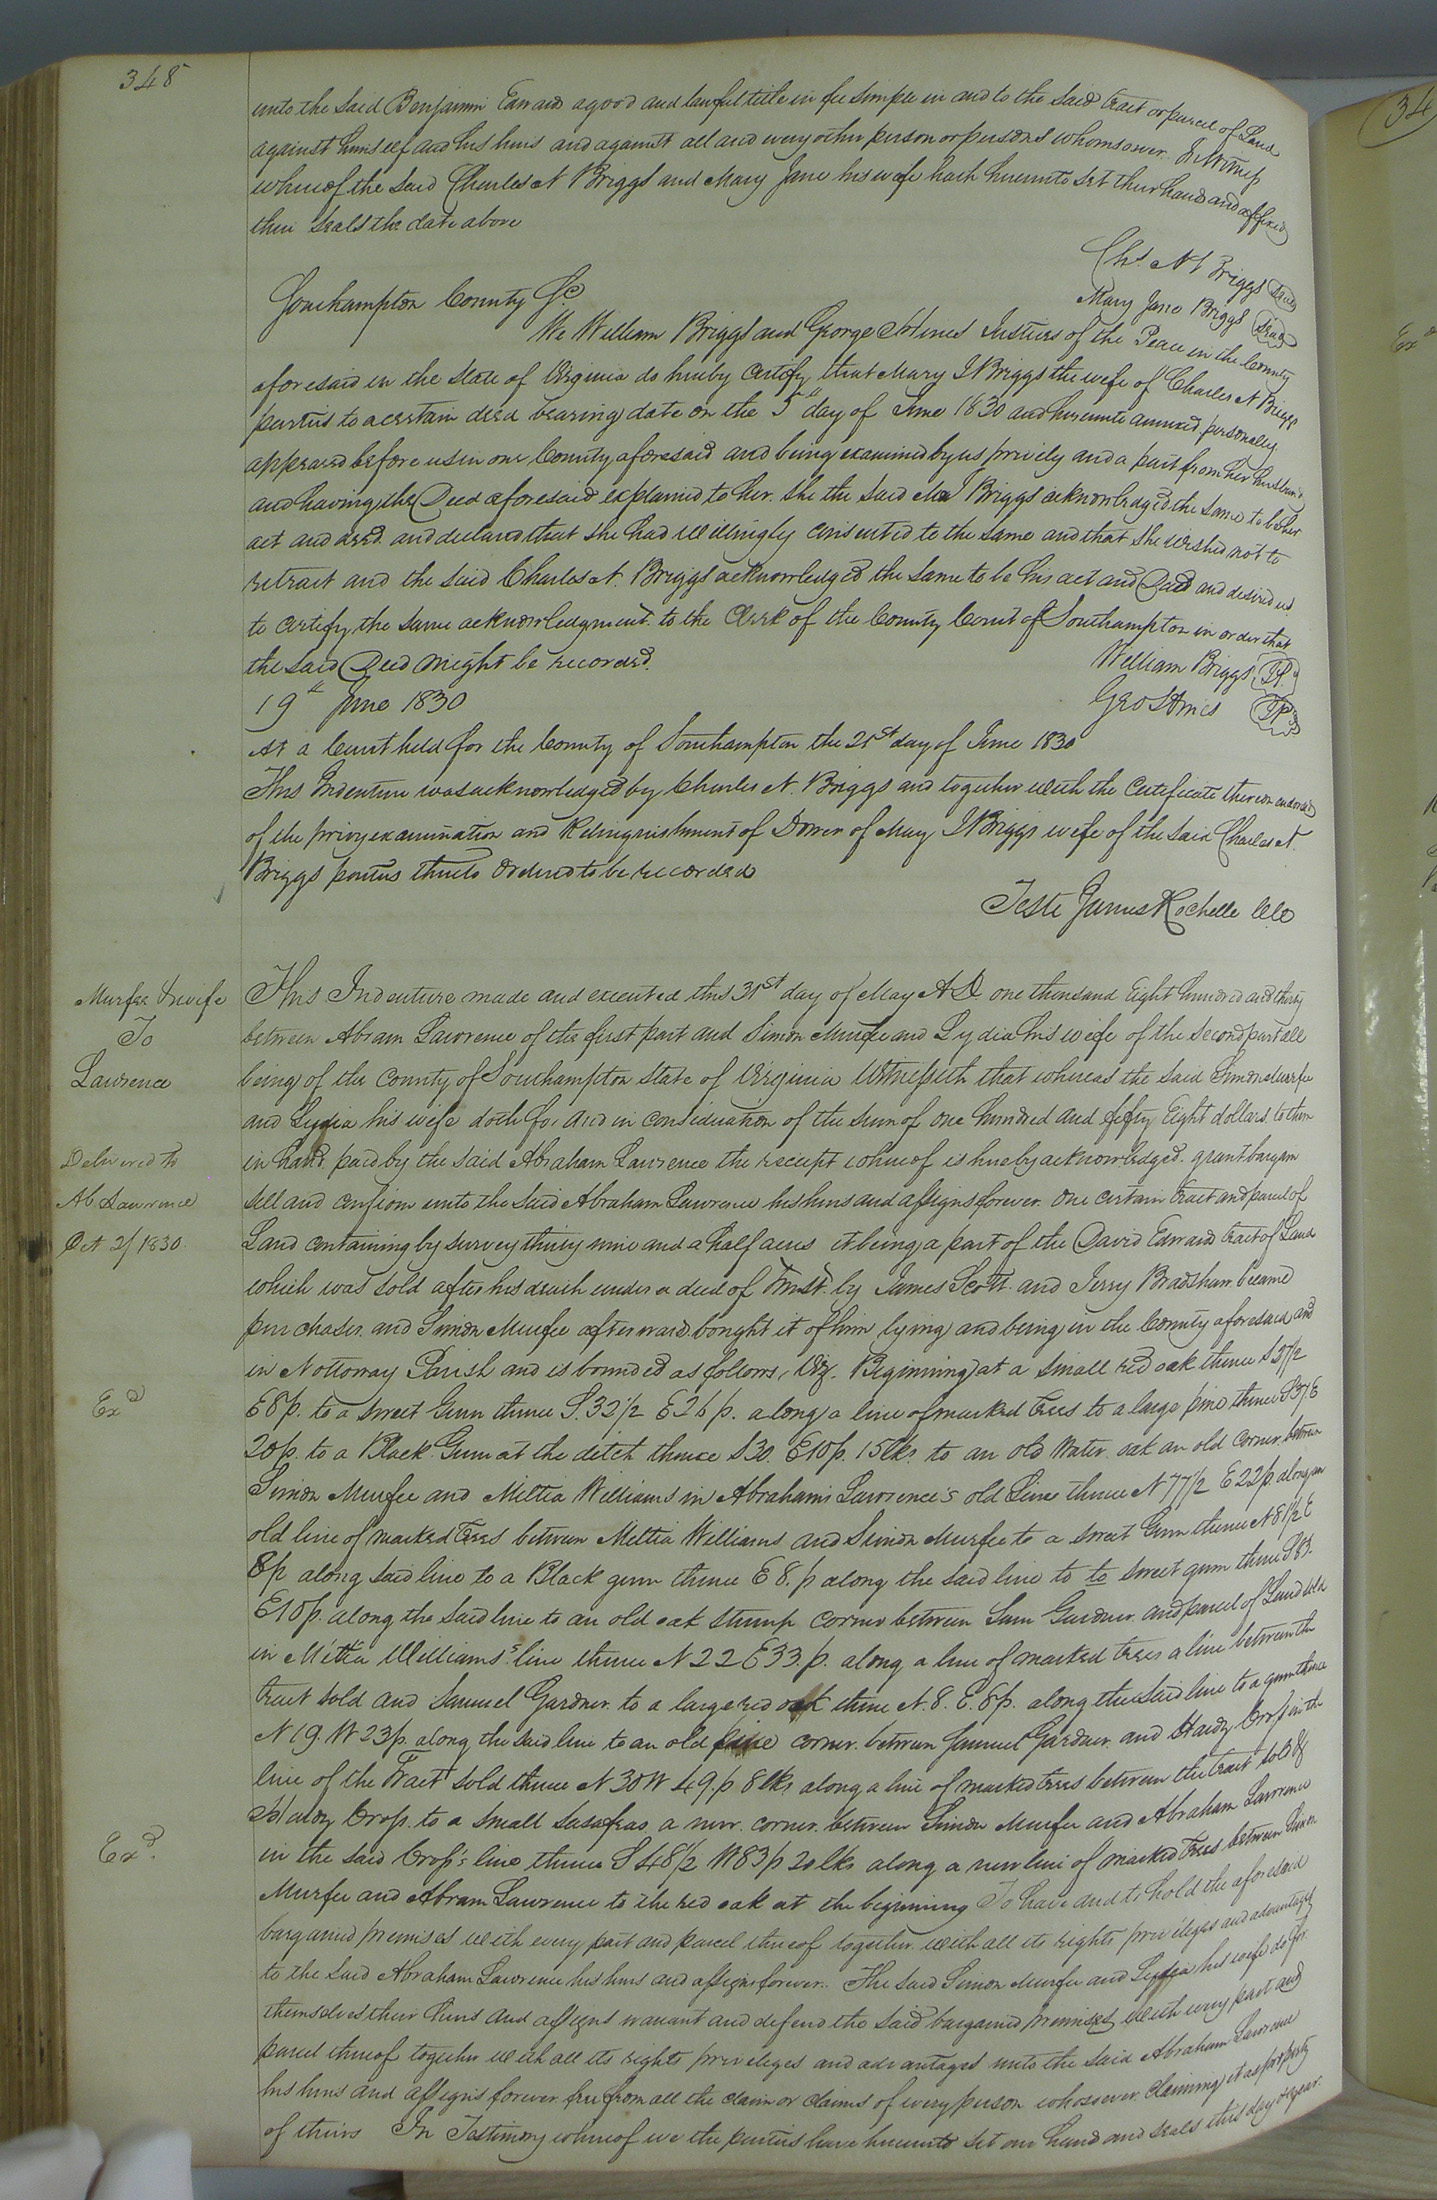 348
unto the said Benjamin Edwards a good and lawful title in fee simple in and to the said tract or parcel of Land
against himself and his heirs and against all and every other person or persons whomsoever. In Witness
whereof the said Charles N Briggs and Mary Jane his wife hath hereunto set their hands and affixed
their seals the date above
Chs. N Briggs Seal
Mary Jane Briggs Seal
Southampton County Sc
We William Briggs and George Justices of the Peace in the County
aforesaid in the State of Virginia do hereby certify that Mary J Briggs the wife of Charles N Briggs
parties to a certain deed bearing date on the 5th day of June 1830 and hereunto annexed personally
appeared before us in our County aforesaid and being examined by us privily and apart from her husband
and having the Deed aforesaid explained to her. She the said M J Briggs acknowledged the same to be her
act and deed. and declared that she had willingly consented to the same and that she wished not to
retract and the said Charles N. Briggs acknowledged the same to be his act and Deed and desired us
to certify the same acknowledgment to the Clerk of the County Court of Southampton in order that
the said Deed might be recorded.
William Briggs J.P.
19th June 1830
Geo JP
At a Court held for the County of Southampton the 21st day of June 1830
This Indenture was acknowledged by Charles N. Briggs and together with the Certificate thereon endorsed
of the privy examination and Relinquishment of Dower of Mary J Briggs wife of the said Charles N.
Briggs parties thereto ordered to be recorded
Teste James Rochelle
Murfee & wife
To
Lawrence
Delivered to
Ab Lawrence
Oct 1830
Exd
Exd.
This Indenture made and executed this 31st day of May A.D. one thousand Eight hundred and thirty
between Abram Lawrence of the first part and Simon Murfee and Lydia his wife of the second part all
being of the County of Southampton State of Virginia Witnesseth that whereas the said Simon Murfee
and Lydia his wife doth for and in consideration of the sum of one hundred and fifty Eight dollars. to them
in hand. paid by the said Abraham Lawrence the receipt whereof is hereby acknowledged. grant bargain
sell and confirm unto the said Abraham Lawrence his heirs and assigns forever. one certain tract and parcel of
Land containing by survey thirty nine and a half acres it being a part of the David Edwards tract of Land
which was sold after his death under a deed of Trust. by James Scott. and Jerry Bradshaw became
purchaser. and Simon Murfee afterwards bought it of him lying and being in the County aforesaid and
in Nottoway Parish and is bounded as follows, Viz. Beginning at a small red oak thence S 37 1/2
E 8 p. to a sweet Gum thence S. 32 1/2 E 26 p. along a line of marked trees to a large pine thence S 37. E
20 p. to a Black Gum at the ditch thence S 30. E 10 p. 15 lks to an old Water oak an old corner between
Simon Murfee and Miltia Williams in Abraham Lawrence's old Line thence N 77 1/2 E 22 p. along an
old line of marked trees between Miltia Williams and Simon Murfee to a sweet Gum thence N 81 1/2 E
8 p along said line to a Black gum thence E 8. p along the said line to to sweet gum thence S 83.
E 10 p. along the said line to an old oak stump corner between Sam Gardner. and parcel of Land sold
in Williams's line thence N 22 E 33. p. along a line of marked trees a line between the
tract sold and Samuel Gardner. to a large red oak thence N. 8. E. 8 p. along the said line to a gum thence
N 19. W 23 p. along the said line to an old pine corner. between Samuel Gardner. and Hardy Crop in the
line of the Tract sold thence N 30 W 49. p 8 lks along a line of marked trees between the tract sold &
Hardy Crop. to a small sasafras a new. corner. between Simon Murfee and Abraham Lawrence
in the said Crop's line thence S 48 1/2 W 83 p 20 lks along a new line of marked trees between Simon
Murfee and Abram Lawrence to the red oak at the beginning To have and to hold the aforesaid
bargained premises with every part and parcel thereof together with all its rights privileges and advantages
to the said Abraham Lawrence his heirs and assigns forever. The said Simon Murfee and Lydia his wife do for
themselves their heirs and assigns warrant and defend the said bargained premises with every part and
parcel thereof together with all its rights privileges and advantages unto the said Abraham Lawrence
his heirs and assigns forever free from all the claim or claims of every person whosoever. Claiming it as property
of theirs In Testimony whereof we the parties have hereunto set our hand and seals this day & year.
34
Exd